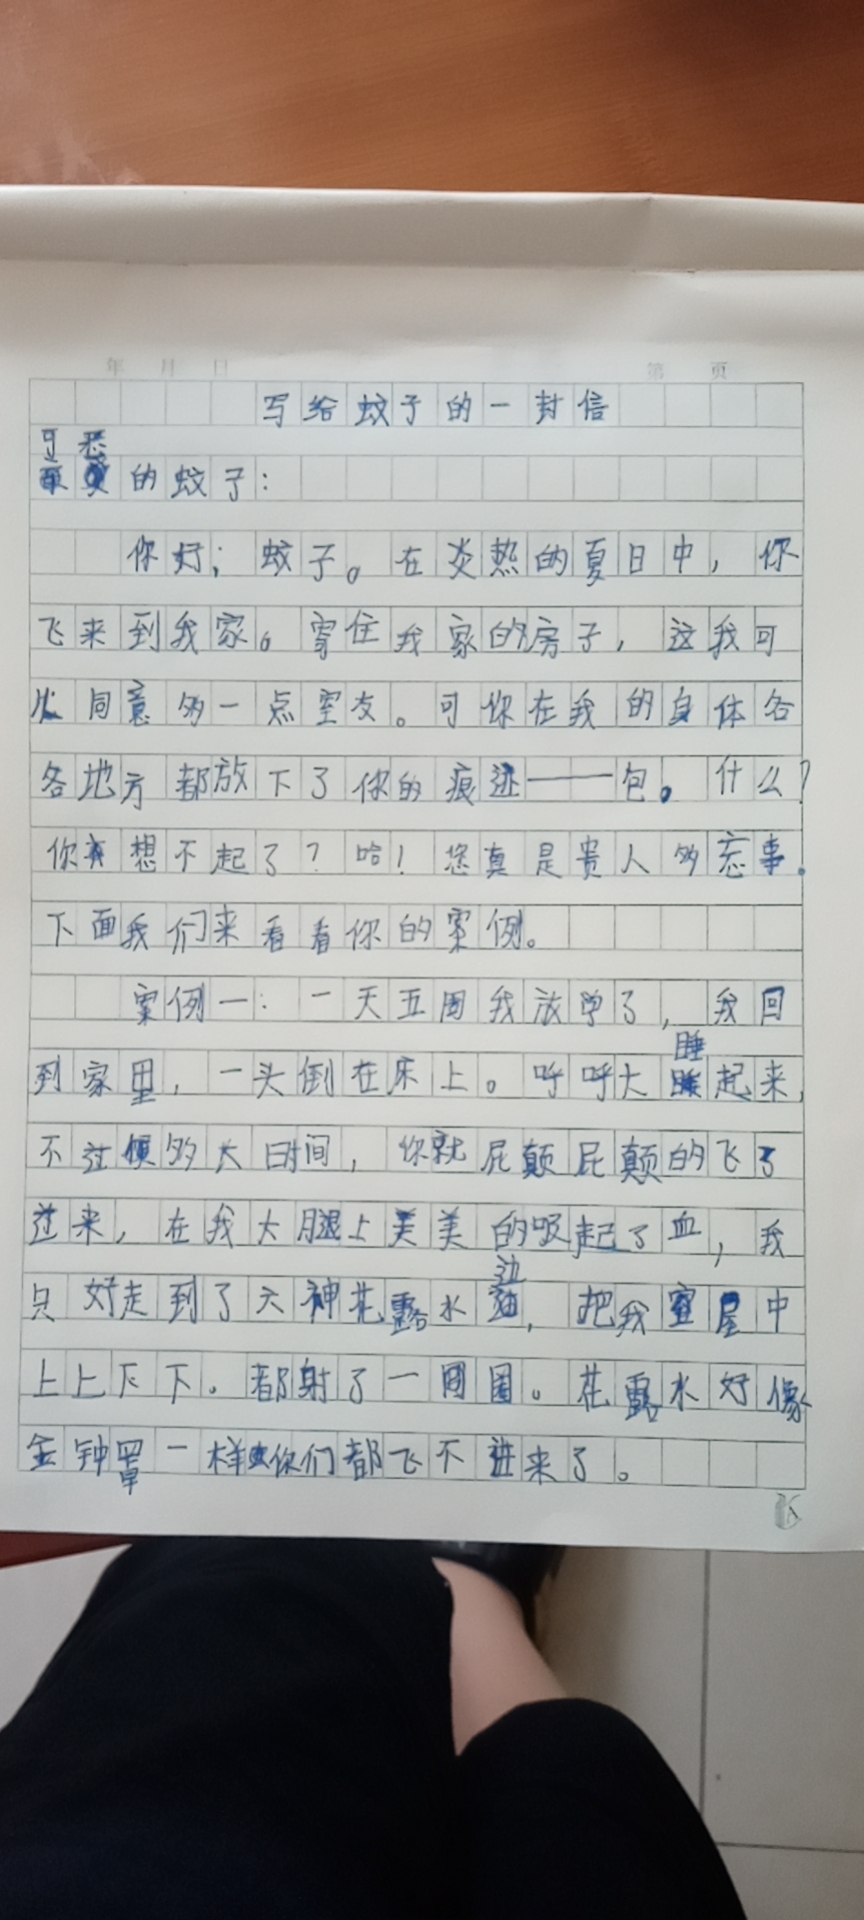 年 月 日 第 页
写给蚊子的一封信
可恶
的蚊子：
你好；蚊子。在炎热的夏日中，你
飞来到我家。寄住我家的房子，这我可
以同意多一点室友。可你在我的身体各
各地方都放下了你的痕迹——包。什么？
你想不起了？哈！您真是贵人多忘事。
下面我们来看看你的案例。
案例一：一天五周我放学了，我回
睡
到家里，一头倒在床上。呼呼大起来，
不过多大时间，你就屁颠屁颠的飞了
过来，在我大腿上美美的吸起了血，我
边
只好走到了六神花露水，把我屋中
上上下下。都射了一圈。花露水好像
金钟罩一样你们都飞不进来了。